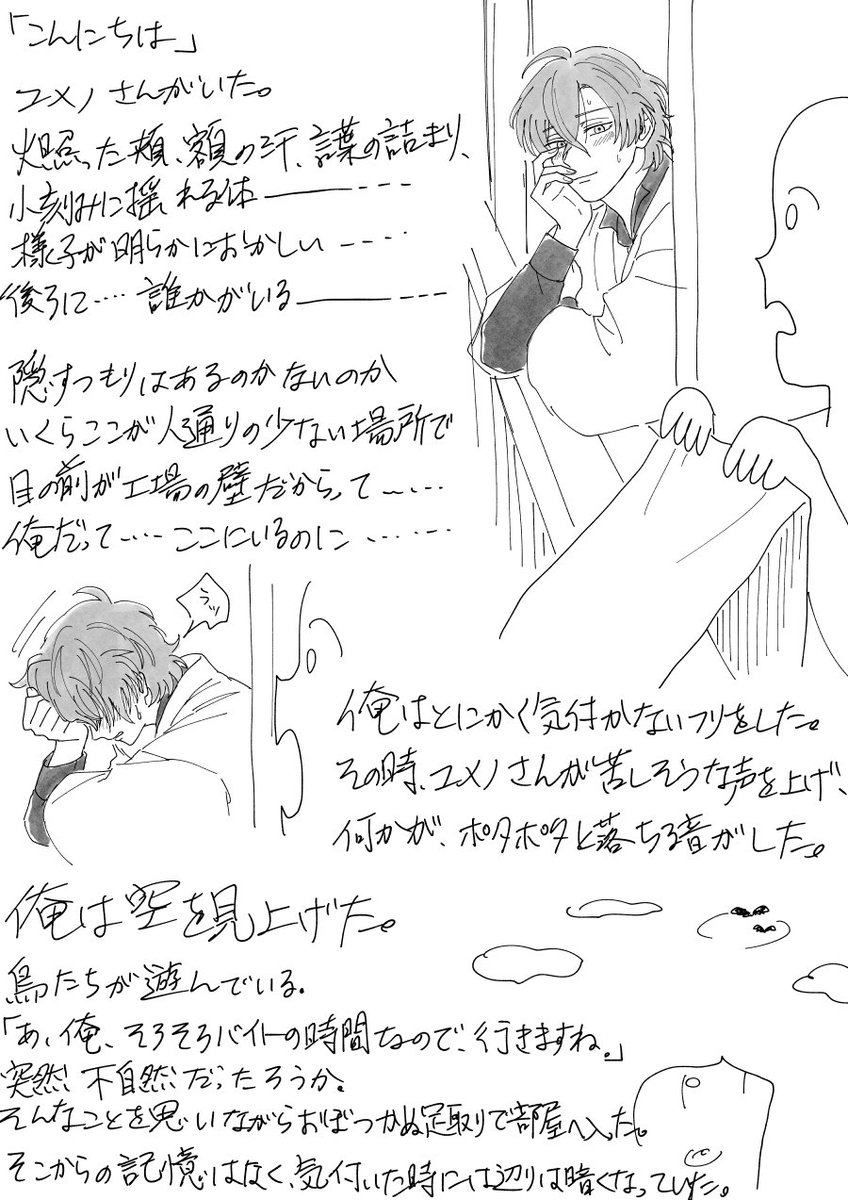 「こんにちは」
ユメノさんがいた。
火照った頬、額の汗、言葉の詰まり、
小刻みに揺れる体――---
様子が明らかにおかしい----
後ろに‥‥誰かがいる――---
隠すつもりはあるのかないのか
いくらここが人通りの少ない場所で
目の前が工場の壁だからって~‥‥
俺だって‥‥ここにいるのに‥‥--
うッ
俺はとにかく気付かないフリをした。
その時、ユメノさんが苦しそうな声を上げ、
何かが、ポタポタと落ちる音がした。
俺は空を見上げた。
鳥たちが遊んでいる。
「あ、俺、そろそろバイトの時間なので、行きますね。」
突然!不自然だったろうか。
そんなことを思いながらおぼつかぬ足取りで部屋へ入った。
そこからの記憶はなく、気付いた時には辺りは暗くなっていた。